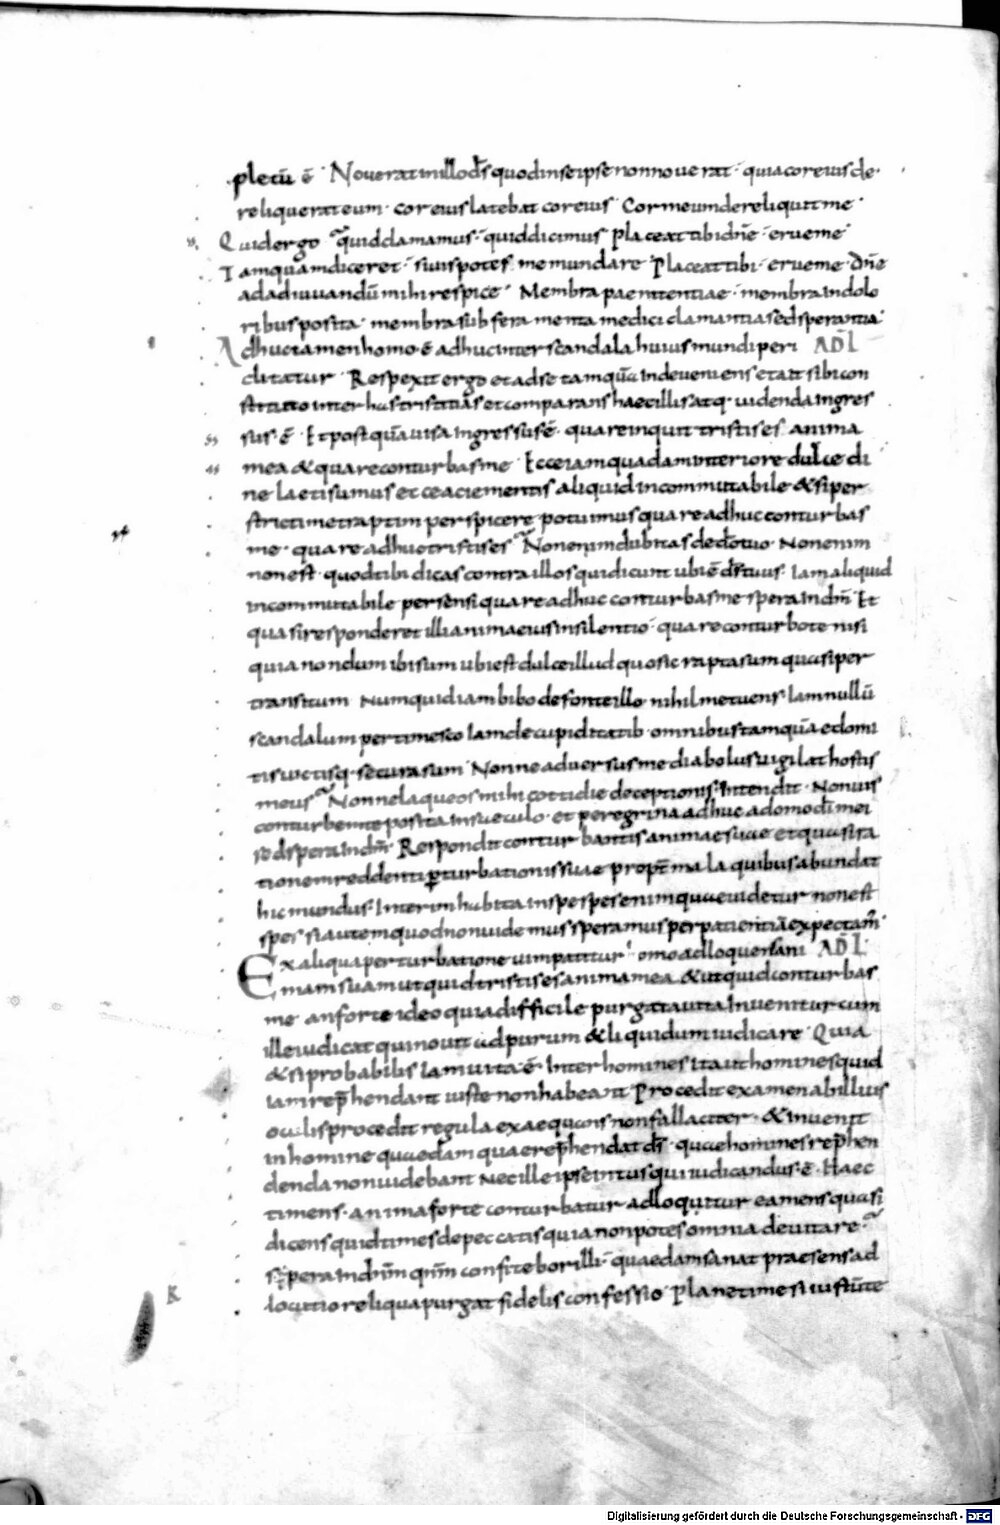 pletū ē · Nouerat in illo d̄s quod in se ipse non nouerat · quia cor eius de
reliquerat eum · cor eius latebat cor eius · Cor meum dereliquit me ·
Quid ergo quid clamamus · quid dicimus Placeat tibi dn̄e · erue me
Tamquam diceret · si uis potes me mundare Placeat tibi · erue me · dn̄e
ad adiuuandū mihi respice · Membra paenitentiae · membra in dolo
ribus posita · membra sub feramenta medici clamantia sed sperantia
Adhuc tamen homo ē adhuc inter scandala huius mundi peri AD L
clitatur Respexit ergo et ad se tamquā inde ueniens et ait sibi con
stituto inter has tristitiās et comparans haec illis atq · uidenda ingres
sus ē · Et post quā uisa ingressus ē · quare inquit tristis es anima
mea & quare conturbas me Ecce iam quadam interiore dulcedi
ne laeti sumus et ce acie mentis aliquid incommutabile & si per
strictim et raptim perspicere potuimus quare adhuc conturbas
me · quare adhuc tristis es Non enim dubitas de do tuo · Non enim
non est · quod tibi dicas contra illos qui dicunt ubi ē ds tuus · Iam aliquid
incommutabile persensi quare adhuc conturbas me spera in dm̄ Et
quasi responderet illi anima eius in silentio · quare conturbo te nisi
quia nondum ibi sum ubi est dulce illud quo sic rapta sum quasi per
transitum Numquid iam bibo de fonte illo · nihil metuens · Iam nullū
scandalum pertimesco Iam de cupiditatib · omnibus tamquā edomi
tis uictisq · secura sum Nonne aduersus me diabolus uigilat hostis
meus Nonne laqueos mihi cottidie deceptionis · Intendit · Non uis
conturbem te posita in saeculo · et peregrina adhuc a domo di mei
sed spera in dm̄ · Respondit conturbantis animae suae et quasi ra
tionem reddenti perturbationis suae propt mala quibus abundat
hic mundus · Interim habita in spe spes enim quae uidetur non est
spes si autem quod non uidemus speramus per patientiā expectam̄
Ex aliqua perturbatione uim patitur homo adloquens ani AD L
mam suam ut quid tristis es anima mea & ut quid conturbas
me an forte ideo quia difficile purgata uita inuenitur cum
ille iudicat qui nouit ad purum & liquidum iudicare Quia
& si probabilis iam uita ē · Inter homines ita ut homines quid
iam rep̄hendant iuste non habeant Procedit examen ab illius
oculis procedit regula exaequans non fallaciter · & inuenit
in homine quaedam quae rep̄hendat ds · quae homines rep̄hen
denda non uidebant nec ille ipse intus qui iudicandus ē · Haec
timens · anima forte conturbatur adloquitur eam mens quasi
dicens quid times de peccatis quia non potes omnia deuitare
spera in dnm̄ qnm̄ confitebor illi · quaedam sanat praesens ad
locutio reliqua purgat fidelis confessio Plane time si iustū te
K
Digitalisierung gefördert durch die Deutsche Forschungsgemeinschaft - DFG